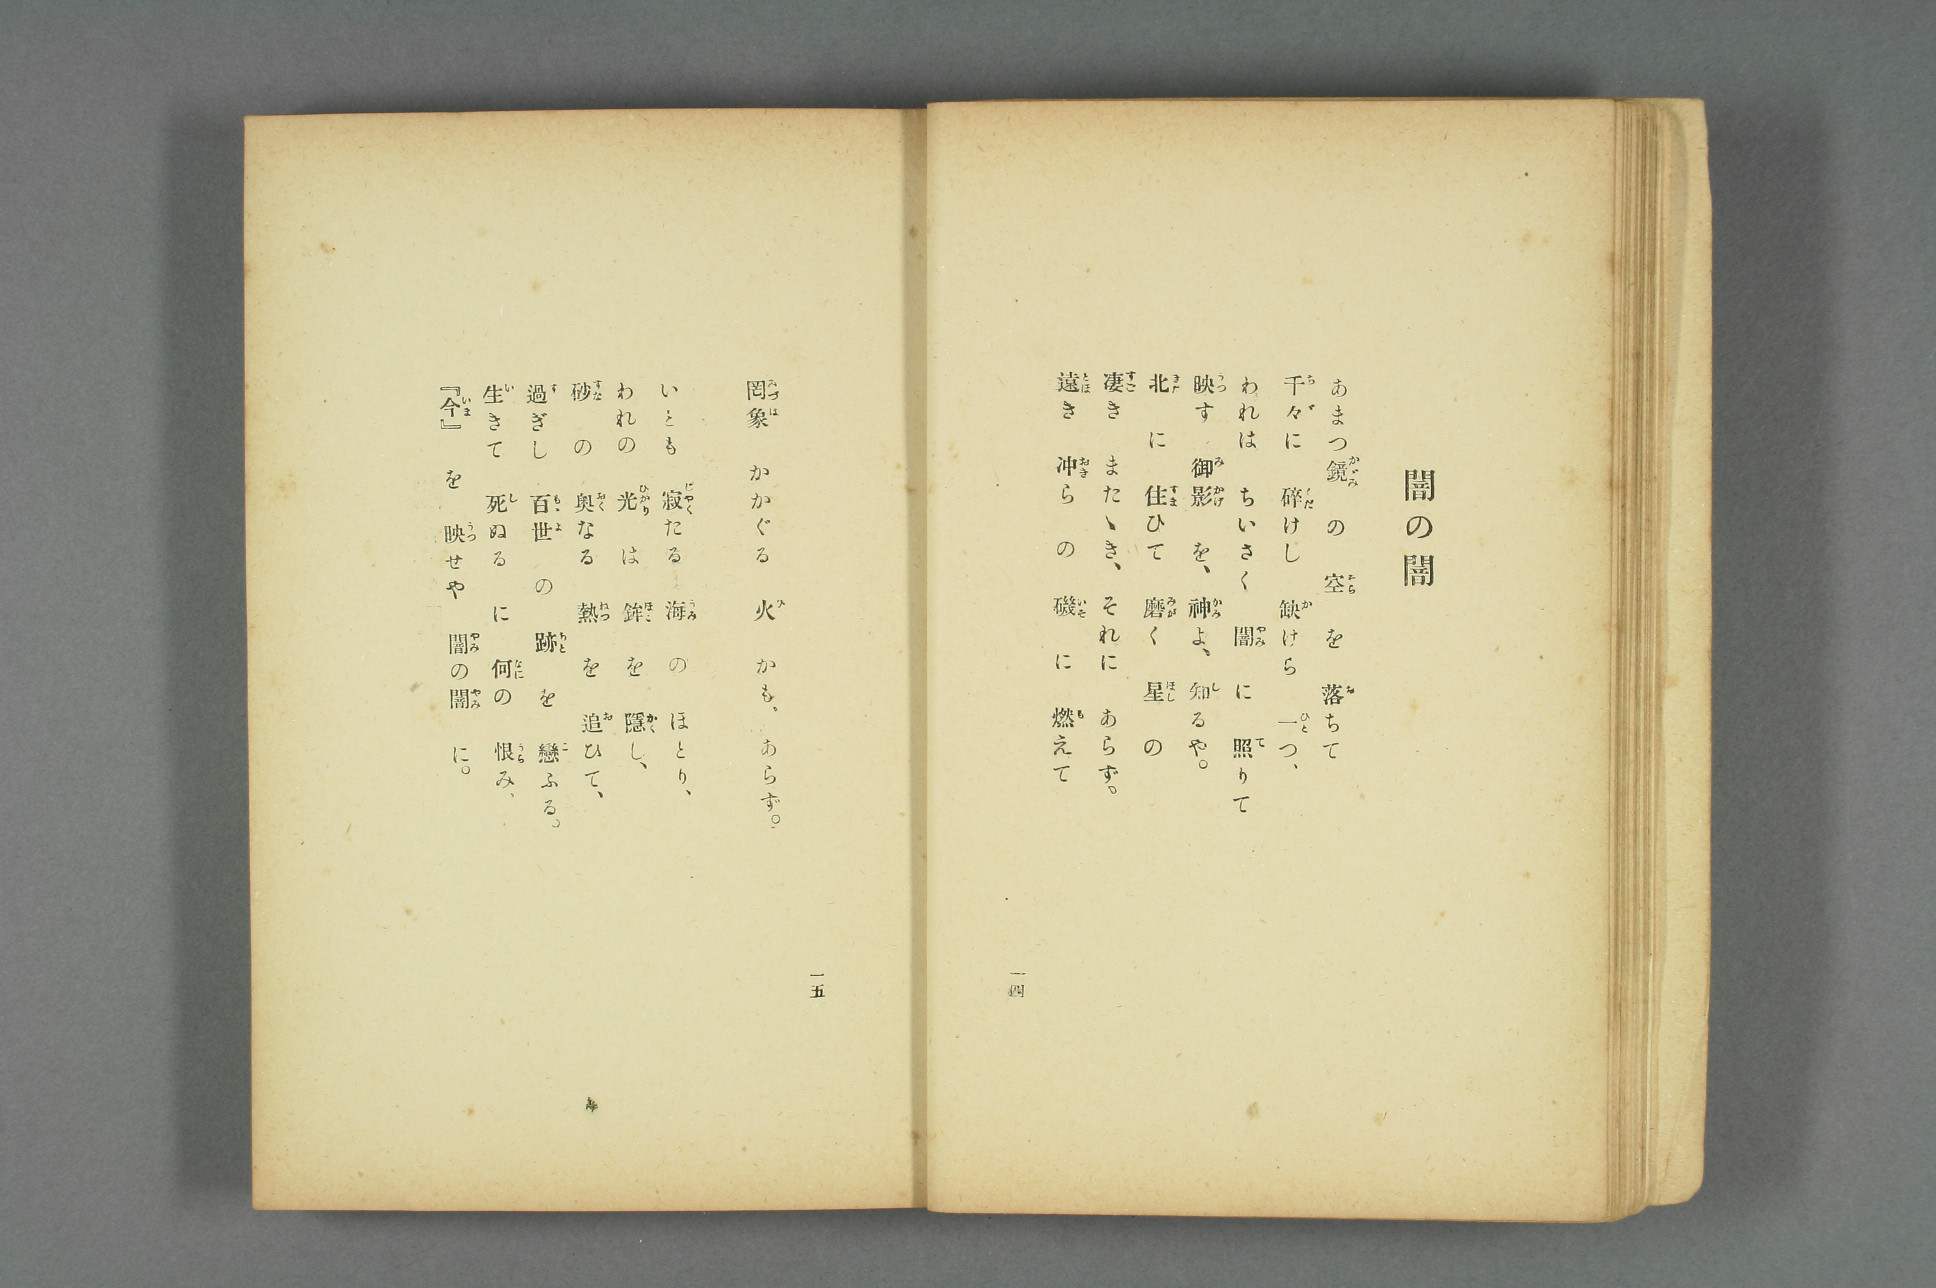 闇の闇
あまつ鏡の 空を 落ちて
千々に 碎けし 缺けら 一つ、
われは ちいさく 闇に 照りて
映す 御影を、神よ、知るや。
北に 住ひて 磨く 星の
凄き またゝき、それに あらず。
遠き 沖らの 磯に 燃えて
一四
罔象 かかぐる 火 かも、あらず。
いとも 寂たる 海の ほとり、
われの 光は 鉾を 隱し、
砂の 奥なる 熱を 追ひて、
過ぎし 百世の 跡を 戀ふる。
生きて 死ぬるに 何の 恨み、
『今』を 映せや 闇の闇に。
一五